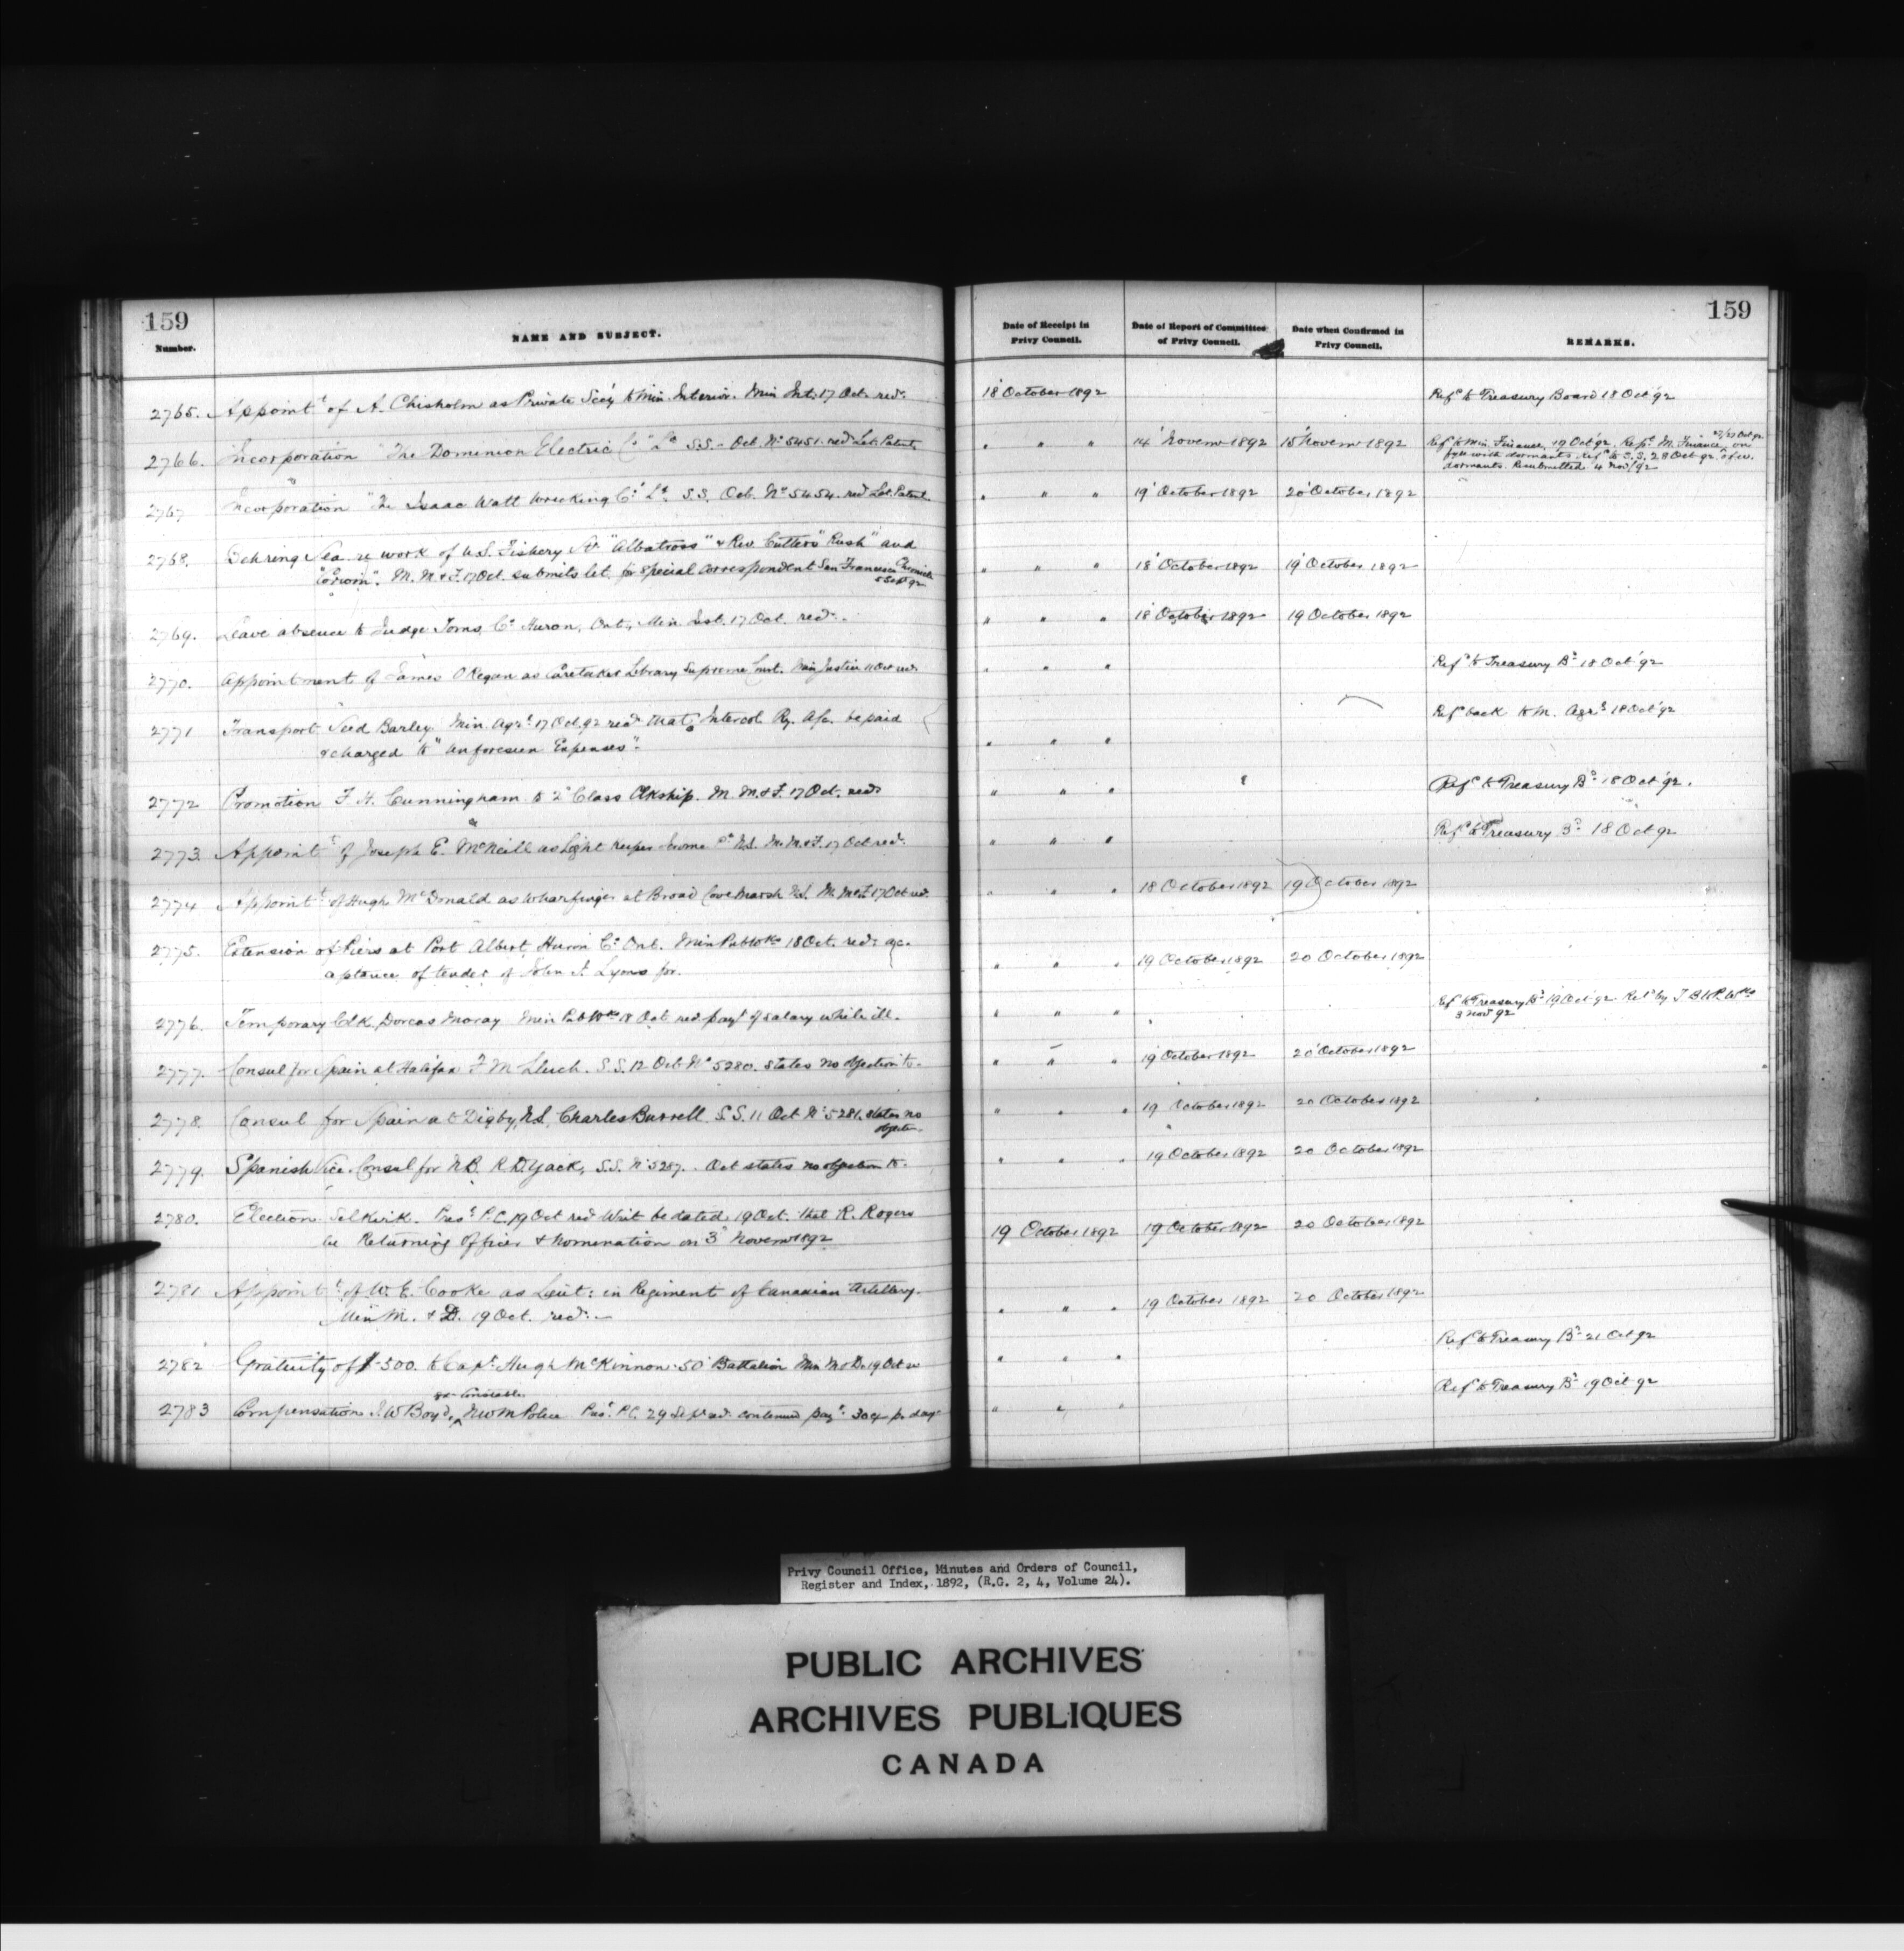 159
159
Number.
NAME AND SUBJECT.
Date of Receipt in Privy Council.
Date of Report of Committee of Privy Council.
Date when Confirmed in Privy Council.
REMARKS.
2765. Appoint.t of A. Chisholm as Private Sec'y to Min. Interior. Min Int. 17 Oct. rec.ds 18 October 1892 Ref.d to Treasury Board 18 Oct '92
2766. Incorporation "The Dominion Electric Co." Ld. S.S. - Oct. No 5451. recds Let. Patent " " " 14 Novemr 1892 15 Novemr 1892 Refd to Min. Finance, 19 Oct '92. Rept M. Finance on
fyle with dormants Refd to S.S. 28 Oct 92
dormants. Resubmitted 4 Nov/92
2767 Incorporation "The Isaac Watt Wrecking Co." Ld. S.S. Oct. No 5454. recds Let. Patent " " " 19 October 1892 20 October 1892
2768. Behring Sea re work of U.S. Fishery Str "Albatross" & Rev. Cutters "Rush" and
"Corwin". M. M. & F. 17 Oct. submits let. fr Special Correspondent San Francisco Chronicle 5 Sept 92 " " " 18 October 1892 19 October 1892
2769. Leave absence to Judge Toms, Co Huron, Ont., Min. Just. 17 Oct. recds. " " " 18 October 1892 19 October 1892
2770. Appointment of James O'Regan as Caretaker Library Supreme Court. Min Justice 11 Oct recds. " " " Refd to Treasury Bd 18 Oct '92
2771 Transport Seed Barley. Min. Agre 17 Oct. 92 recds that Intercol. Ry. A/c. be paid
& charged to "Unforeseen Expenses". " " " Refd back to M. Agre 18 Oct '92
2772 Promotion F. H. Cunningham to 2d Class Clkship. M. M. & F. 17 Oct. recds " " " Refd to Treasury Bd 18 Oct '92.
2773. Appointt of Joseph E. McNeill as Light Keeper Pt N.S. M. M. & F. 17 Oct recd. " " " Refd to Treasury Bd 18 Oct 92
2774 Appointt of Hugh McDonald as Wharfinger at Broad Cove Marsh N.S. M. M & F. 17 Oct recds " " " 18 October 1892 19 October 1892
2775. Extension of Piers at Port Albert, Huron Co. Ont. Min Pub Wks 18 Oct. recds ac-
ceptance of tender of John I. Lyons for. " " " 19 October 1892 20 October 1892
2776. Temporary Clk. Dorcas Moray Min Pub Wks 18 Oct. recds payt of salary while ill. " " " Refd to Treasury Bd 19 Oct 92
3 Nov 92
2777. Consul for Spain at Halifax F M Lluch. S.S. 12 Oct. No 5280. states no objection to. " " " 19 October 1892 20 October 1892
2778. Consul for Spain at Digby, N.S. Charles Burrell. S.S. 11 Oct No 5281. states no objection. " " " 19 October 1892 20 October 1892
2779. Spanish Vice Consul for N.B. R D. Yack, S.S. No 5287. Oct states no objection to. " " " 19 October 1892 20 October 1892
2780. Election Selkirk. Prest P.C. 19 Oct recds Writ be dated 19 Oct. that R. Rogers
be Returning Officer & nomination on 3d Novemr 1892 19 October 1892 19 October 1892 20 October 1892
2781 Appointt of W. E. Cooke as Lieut: in Regiment of Canadian Artillery.
Min M. & D. 19 Oct. recds. " " " 19 October 1892 20 October 1892
2782 Gratuity of $ 500. to Capt. Hugh McKinnon 50 Battalion Min M & D. 19 Oct " " " Refd to Treasury Bd 21 Oct 92
2783 Compensation J. W Boyd, ex-Constable N W M Police Prest. P.C. 29 Sept recds continued payt 30c pr day " " " Refd to Treasury Bd 19 Oct 92
Privy Council Office, Minutes and Orders of Council,
Register and Index, 1892, (R.G. 2, 4, Volume 24).
PUBLIC ARCHIVES
ARCHIVES PUBLIQUES
CANADA